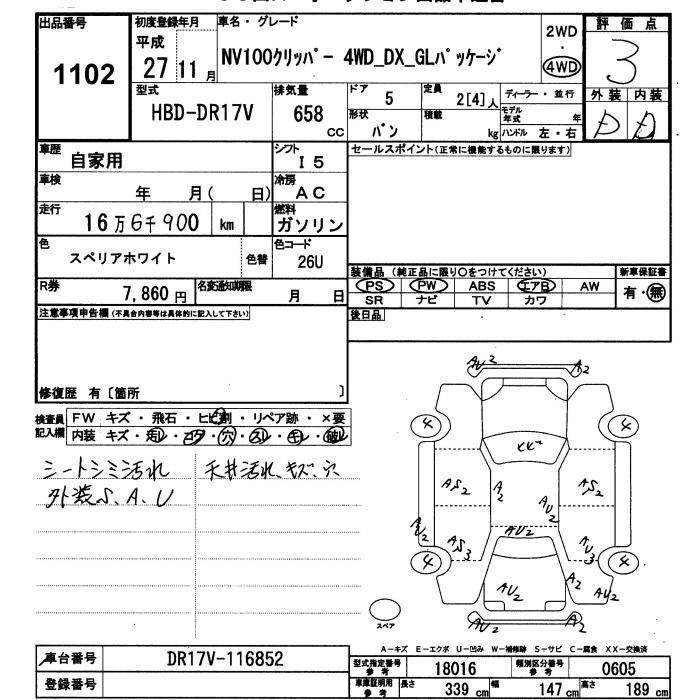 出品番号 初度登録年月 車名・グレード 評価点
1102 平成 27 11月 NV100クリッパー 4WD_DX_GLパッケージ 2WD・4WD 3
型式 排気量 ドア 定員 ディーラー・並行 外装 内装
HBD-DR17V 658 cc 5 2[4]人 モデル年式 年 D D
形状 バン 積載 kg ハンドル 左・右
車歴 自家用 シフト I5 セールスポイント(正常に機能するものに限ります)
車検 年 月( 日) 冷房 AC
走行 16万6千900 km 燃料 ガソリン
色 スペリアホワイト 色替 色コード 26U
装備品(純正品に限り○をつけてください) 新車保証書
R券 7,860円 名変通知期限 月 日 PS PW ABS エアB AW 有・無
SR ナビ TV カワ
注意事項申告欄(不具合内容等は具体的に記入して下さい) 後日品
修復歴 有〔箇所 〕
検査員記入欄 FW キズ・飛石・ヒビ割・リペア跡・×要
内装 キズ・汚レ・コゲ・穴・スレ・キレ・破レ
シートシミ汚れ 天井汚れ、キズ、穴
外装S、A、U
AU2 A2
4 4
XV
AS2 A2 AU2 AS2
AU2 AU2
AS3 AU3
4 4
AU2 A2 AU2
AU2 A2
スペア
A-キズ E-エクボ U-凹み W-補修跡 S-サビ C-腐食 XX-交換済
車台番号 DR17V-116852 型式指定番号 参考 18016 類別区分番号 参考 0605
登録番号 車庫証明用 参考 長さ 339 cm 幅 147 cm 高さ 189 cm